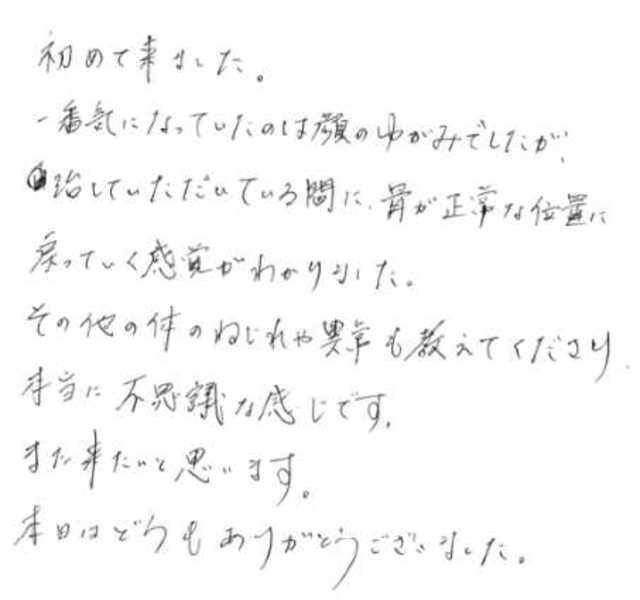 初めて来ました。
一番気になっていたのは顔のゆがみでしたが、
治していただいている間に、骨が正常な位置に
戻っていく感覚がわかりました。
その他の体のねじれや異常も教えてくださり、
本当に不思議な感じです。
また来たいと思います。
本日はどうもありがとうございました。